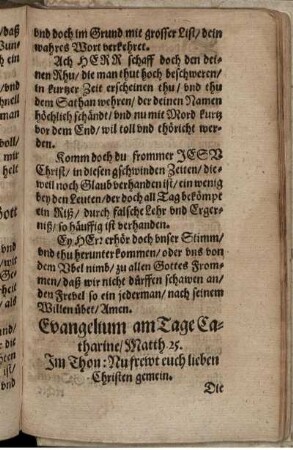 vnd doch im Grund mit grosser List/ dein
wahres Wort verkehret.
Ach HERR schaff doch den dei-
nen Rhu/ die man thut hoch beschweren/
in kurtzer Zeit erscheinen thu/ vnd thu
dem Sathan wehren/ der deinen Namen
höchlich schändt/ vnd nu mit Mord kurtz
vor dem End/ wil toll vnd thöricht wer-
den.
Komm doch du frommer JESV
Christ/ in diesen gschwinden Zeiten/ die-
weil noch Glaub verhanden ist/ ein wenig
bey den Leuten/ der doch all Tag bekömpt
ein Riß/ durch falsche Lehr vnd Erger-
niß/ so häuffig ist verhanden.
Ey HErr erhör doch vnser Stimm/
vnd thu herunter kommen/ oder vns von
dem Vbel nimb/ zu allen Gottes From-
men/ daß wir nicht dürffen schawen an/
den Frevel so ein jederman/ nach seinem
Willen übet/ Amen.
Evangelium am Tage Ca-
tharine/ Matth. 25.
Im Thon: Nu frewt euch lieben
Christen gemein.
Die